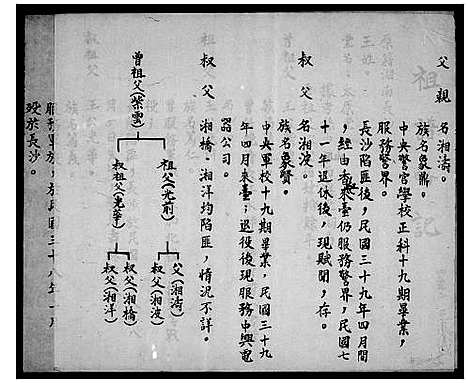 父親 名湘濤。
族名象鼎。
中央警官學校正科十九期畢業，
服務警界。
長沙陷匪後，民國三十九年四月間
，經由香來臺仍服務警界，民國七
十一年退休後，現賦閒，存。
叔父 名湘波。
族名象賢。
中央軍校十九期畢業，民國三十九
年四月來臺；退役後現服務中興電
器公司。
叔父 湘橋、湘洋均陷匪，情況不詳。
曾祖父(紫雲)
祖父(光前)
叔祖父(光華)
父(湘濤)
叔父(湘波)
叔父(湘橋)
叔父(湘洋)
歿於長沙。